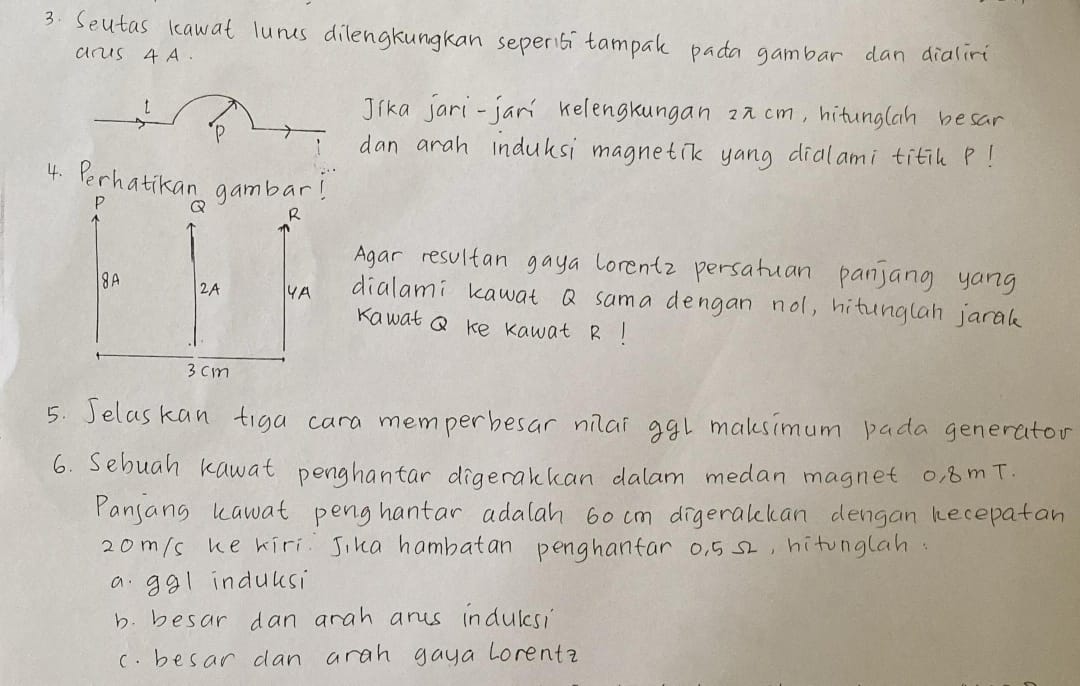 3. Seutas kawat lurus dilengkungkan seperti tampak pada gambar dan dialiri
arus 4 A.
i
P
i
Jika jari-jari kelengkungan 2π cm, hitunglah besar
dan arah induksi magnetik yang dialami titik P!
4. Perhatikan gambar!
P
Q
R
8A
2A
4A
3 cm
Agar resultan gaya lorentz persatuan panjang yang
dialami kawat Q sama dengan nol, hitunglah jarak
Kawat Q ke kawat R !
5. Jelaskan tiga cara memperbesar nilai ggl maksimum pada generator
6. Sebuah kawat penghantar digerakkan dalam medan magnet 0,8 m T.
Panjang kawat penghantar adalah 60 cm digerakkan dengan kecepatan
20 m/s ke kiri. Jika hambatan penghantar 0,5 Ω, hitunglah :
a. ggl induksi
b. besar dan arah arus induksi
c. besar dan arah gaya Lorentz